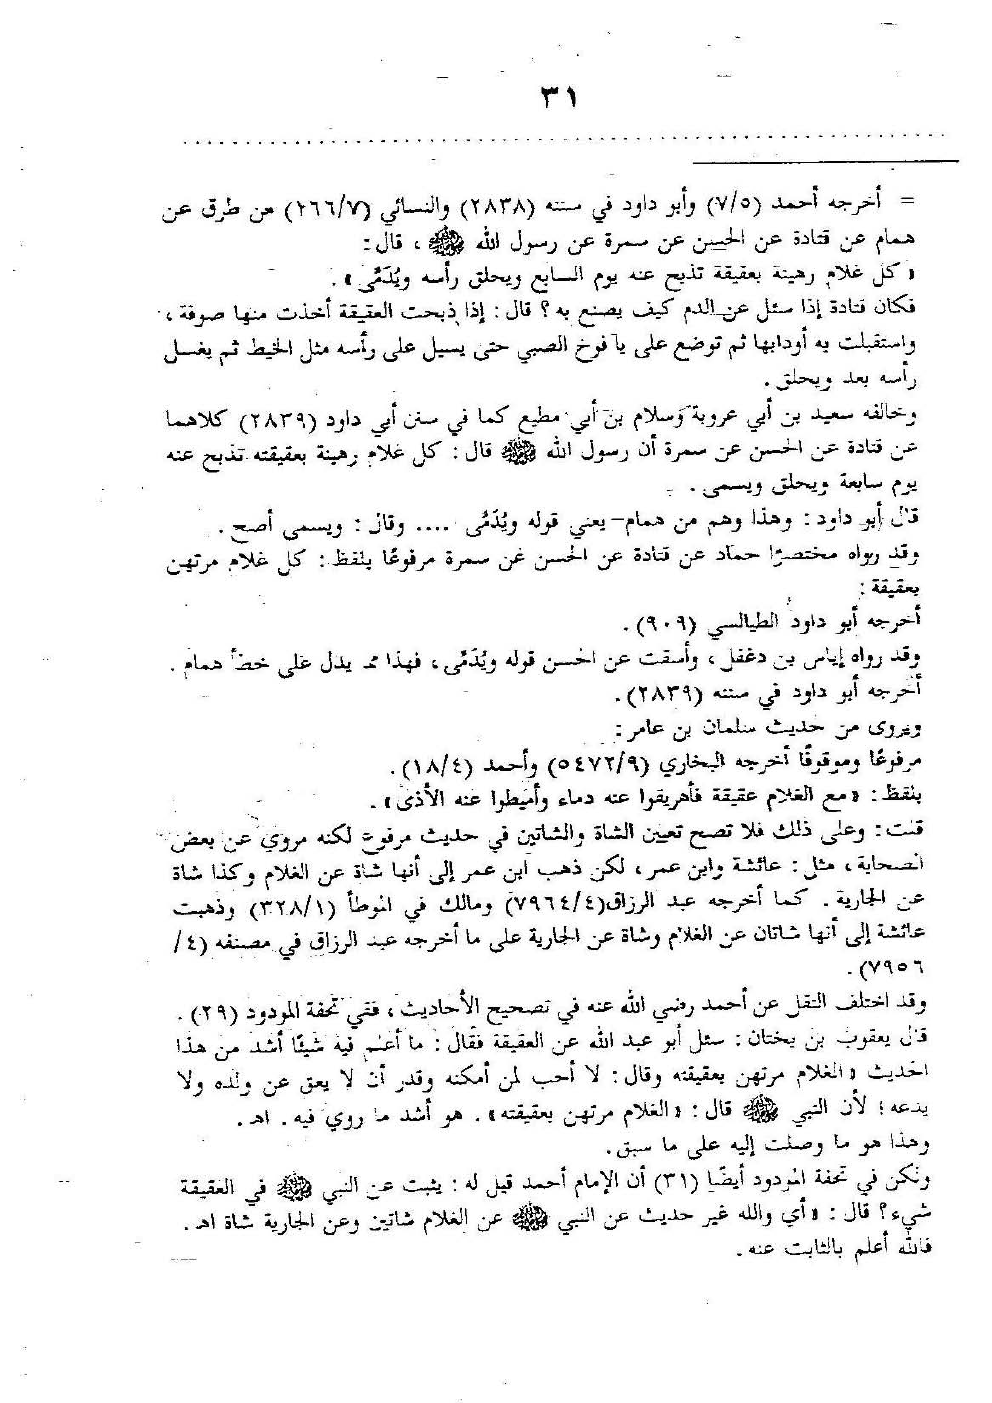 ٣١
= أخرجه أحمد (٧/٥) وأبو داود في سننه (٢٨٣٨) والنسائي (٢٦٦/٧) من طرق عن
همام عن قتادة عن الحسن عن سمرة عن رسول الله ﷺ ، قال :
« كل غلام رهينة بعقيقة تذبح عنه يوم السابع ويحلق رأسه ويُدَمَّى » .
فكان قتادة إذا سئل عن الدم كيف يصنع به ؟ قال : إذا ذبحت العقيقة أخذت منها صوفة ،
واستقبلت به أودابها ثم توضع على يافوخ الصبي حتى يسيل على رأسه مثل الخيط ثم يغسل
رأسه بعد ويحلق .
وخالفه سعيد بن أبي عروبة وسلام بن أبي مطيع كما في سنن أبي داود (٢٨٣٩) كلاهما
عن قتادة عن الحسن عن سمرة أن رسول الله ﷺ قال : كل غلام رهينة بعقيقته تذبح عنه
يوم سابعة ويحلق ويسمى .
قال أبو داود : وهذا وهم من همام - يعني قوله ويُدَمَّى .... وقال : ويسمى أصح .
وقد رواه مختصرًا حماد عن قتادة عن الحسن عن سمرة مرفوعًا بلفظ : كل غلام مرتهن
بعقيقة :
أخرجه أبو داود الطيالسي (٩٠٩) .
وقد رواه إياس بن دغفل ، وأسقت عن الحسن قوله ويُدَمَّى ، فهذا مما يدل على خطأ همام .
أخرجه أبو داود في سننه (٢٨٣٩) .
ويروى من حديث سلمان بن عامر :
مرفوعًا وموقوفًا أخرجه البخاري (٥٤٧٢/٩) وأحمد (١٨/٤) .
بلفظ : « مع الغلام عقيقة فأهريقوا عنه دماء وأميطوا عنه الأذى » .
قلت : وعلى ذلك فلا تصح تعيين الشاة والشاتين في حديث مرفوع لكنه مروي عن بعض
الصحابة ، مثل : عائشة وابن عمر ، لكن ذهب ابن عمر إلى أنها شاة عن الغلام وكذا شاة
عن الجارية . كما أخرجه عبد الرزاق (٧٩٦٤/٤) ومالك في الموطأ (٣٢٨/١) وذهبت
عائشة إلى أنها شاتان عن الغلام وشاة عن الجارية على ما أخرجه عبد الرزاق في مصنفه (٤/
٧٩٥٦) .
وقد اختلف النقل عن أحمد رضي الله عنه في تصحيح الأحاديث ، ففي تحفة المودود (٢٩) .
قال يعقوب بن بختان : سئل أبو عبد الله عن العقيقة فقال : ما أعلم فيه شيئًا أشد من هذا
الحديث « الغلام مرتهن بعقيقته وقال : لا أحب لمن أمكنه وقدر أن لا يعق عن ولده ولا
يدعه ؛ لأن النبي ﷺ قال : « الغلام مرتهن بعقيقته » . هو أشد ما روي فيه . اهـ .
وهذا هو ما وصلت إليه على ما سبق .
ولكن في تحفة المودود أيضًا (٣١) أن الإمام أحمد قيل له : يثبت عن النبي ﷺ في العقيقة
شيء ؟ قال : « أي والله غير حديث عن النبي ﷺ عن الغلام شاتين وعن الجارية شاة اهـ .
فالله أعلم بالثابت عنه .